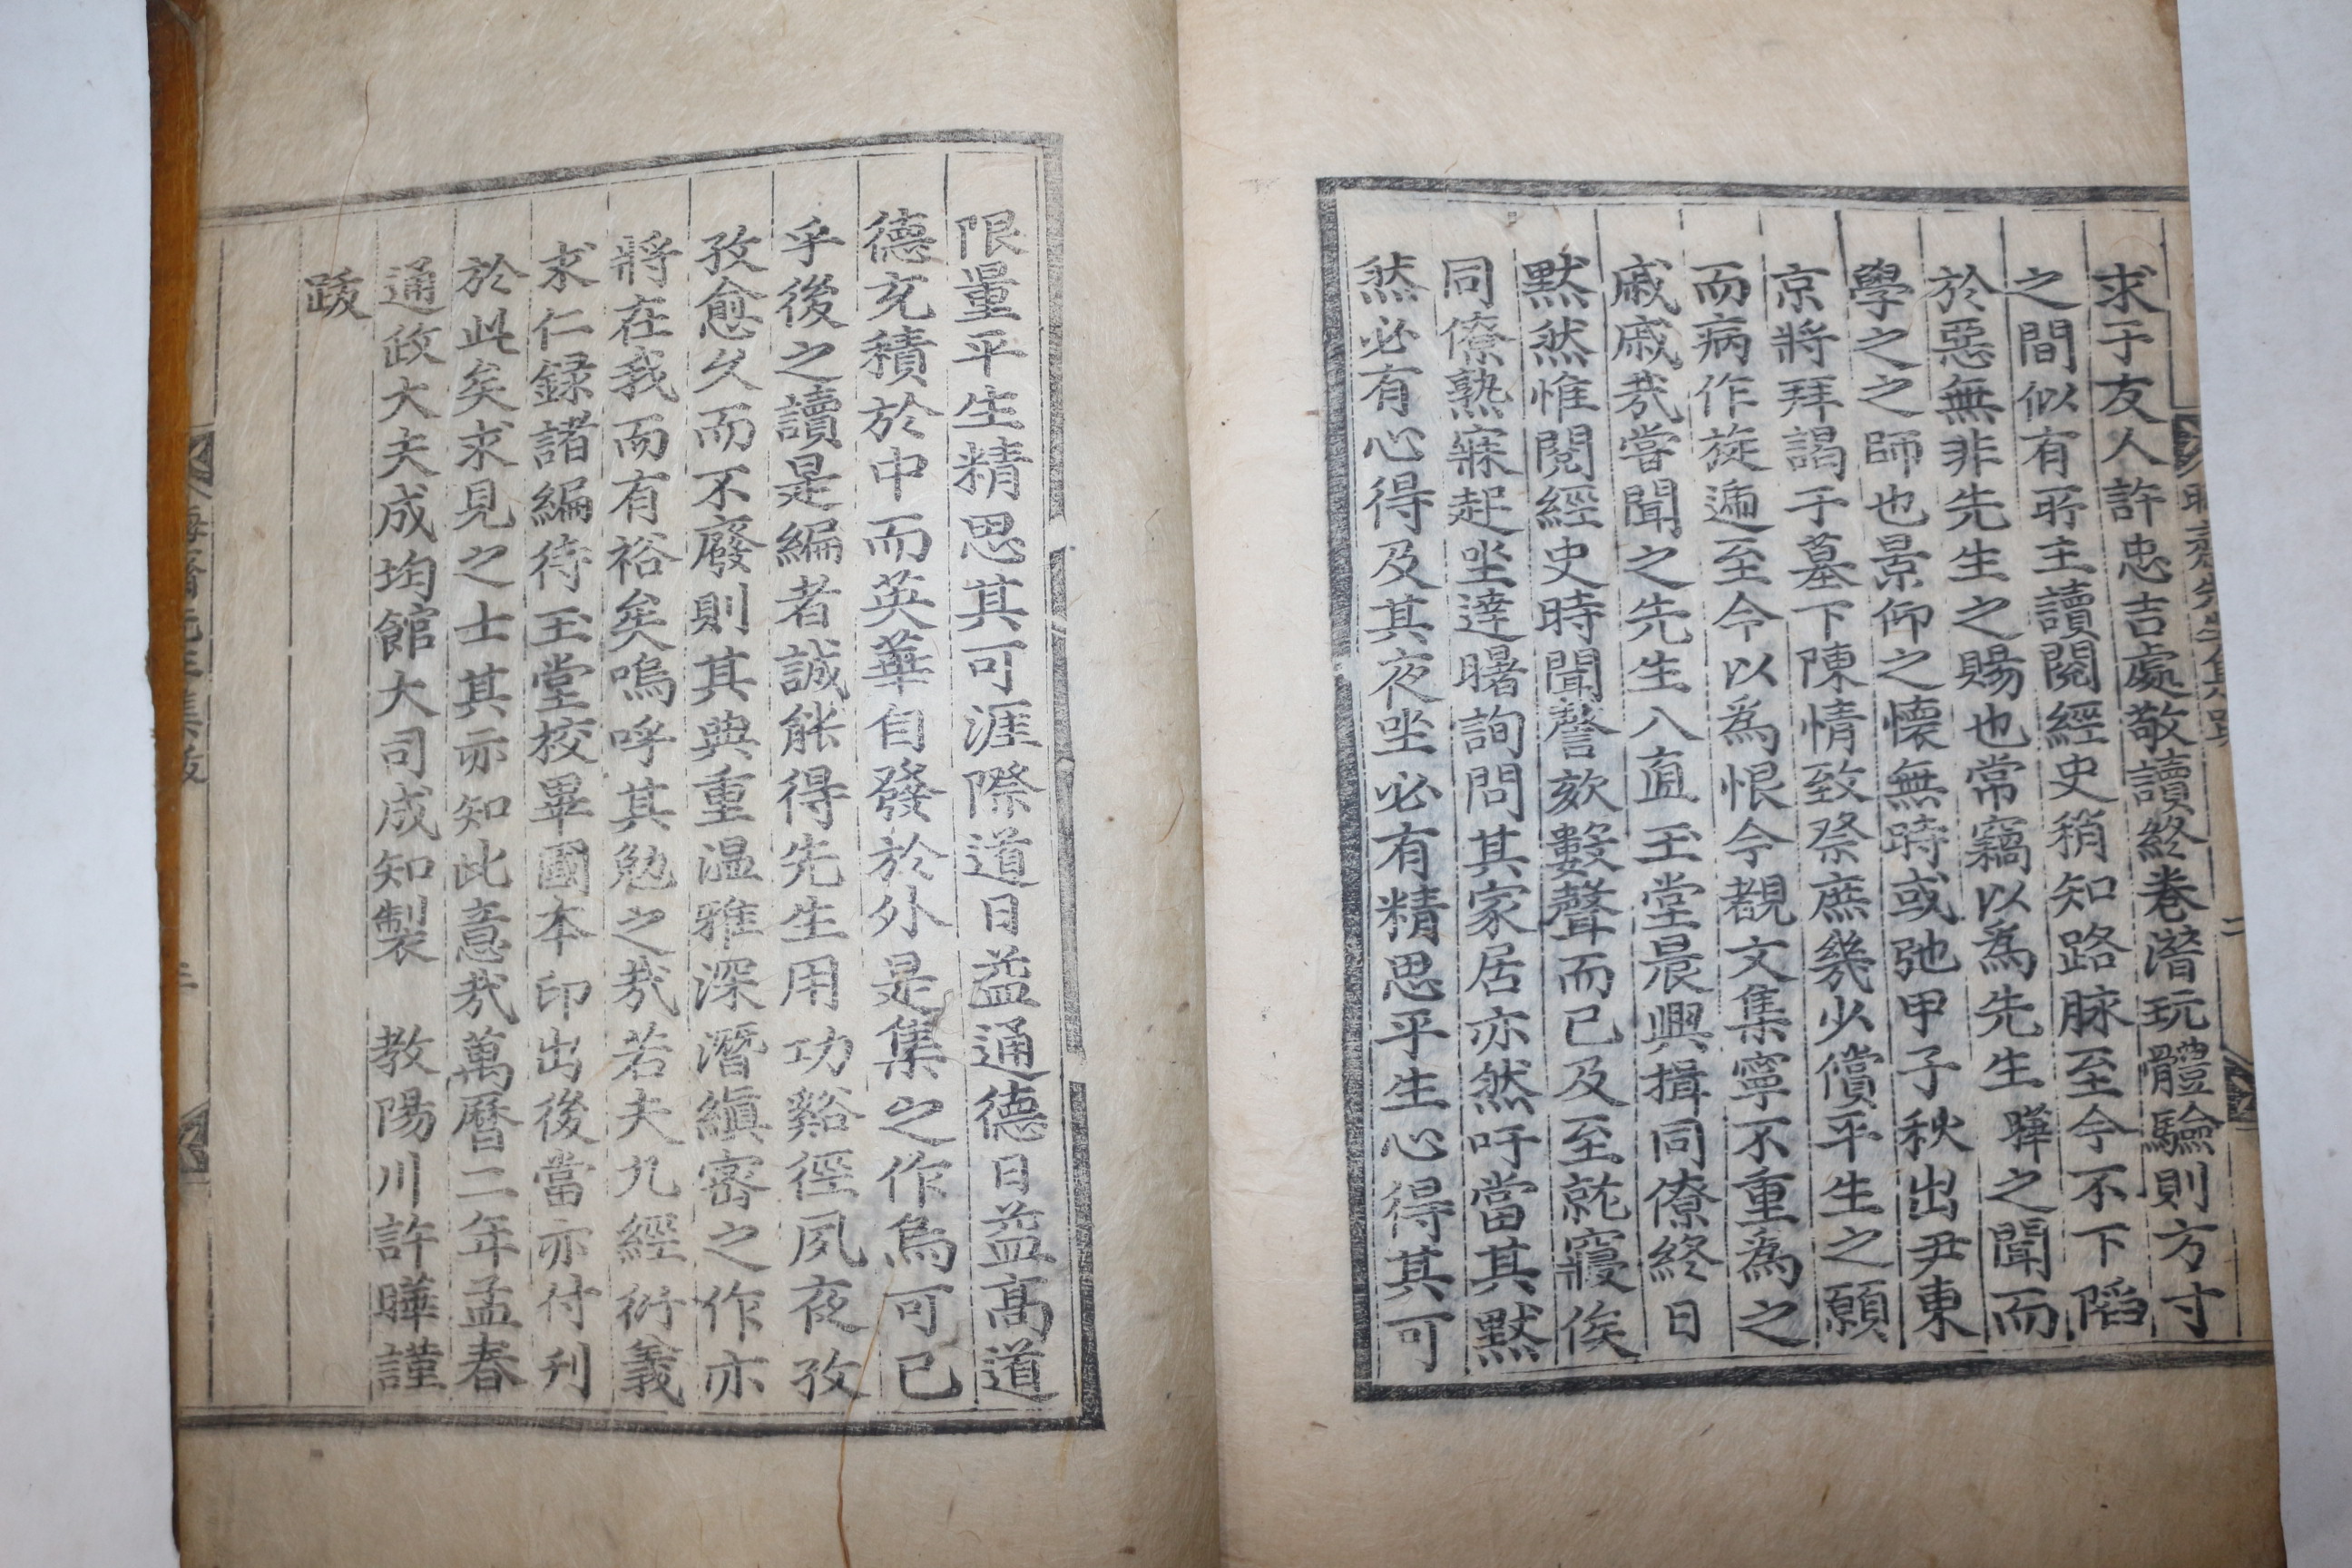 求于友人許忠吉處敬讀終卷潛玩體驗則方寸
之間似有所主讀閱經史稍知路脉至今不下陷
於惡無非先生之賜也常竊以為先生曄之聞而
學之之師也景仰之懷無時或弛甲子秋出尹東
京將拜謁于墓下陳情致祭庶幾少償平生之願
而病作旋遞至今以為恨今覩文集寧不重為之
戚戚㦲嘗聞之先生入直玉堂晨興揖同僚終日
默然惟閱經史時聞謦欬數聲而已及至就寢俟
同僚熟寐起坐達曙詢問其家居亦然吁當其默
然必有心得及其夜坐必有精思平生心得其可
限量平生精思其可涯際道日益通德日益高道
德充積於中而英華自發於外是集之作烏可已
乎後之讀是編者誠能得先生用功谿徑夙夜孜
孜愈久而不廢則其典重温雅深潛縝密之作亦
將在我而有裕矣嗚呼其勉之㦲若夫九經衍義
求仁録諸編待玉堂校畢國本印出後當亦付刋
於此矣求見之士其亦知此意㦲萬曆二年孟春
通政大夫成均館大司成知製 教陽川許曄謹
跋